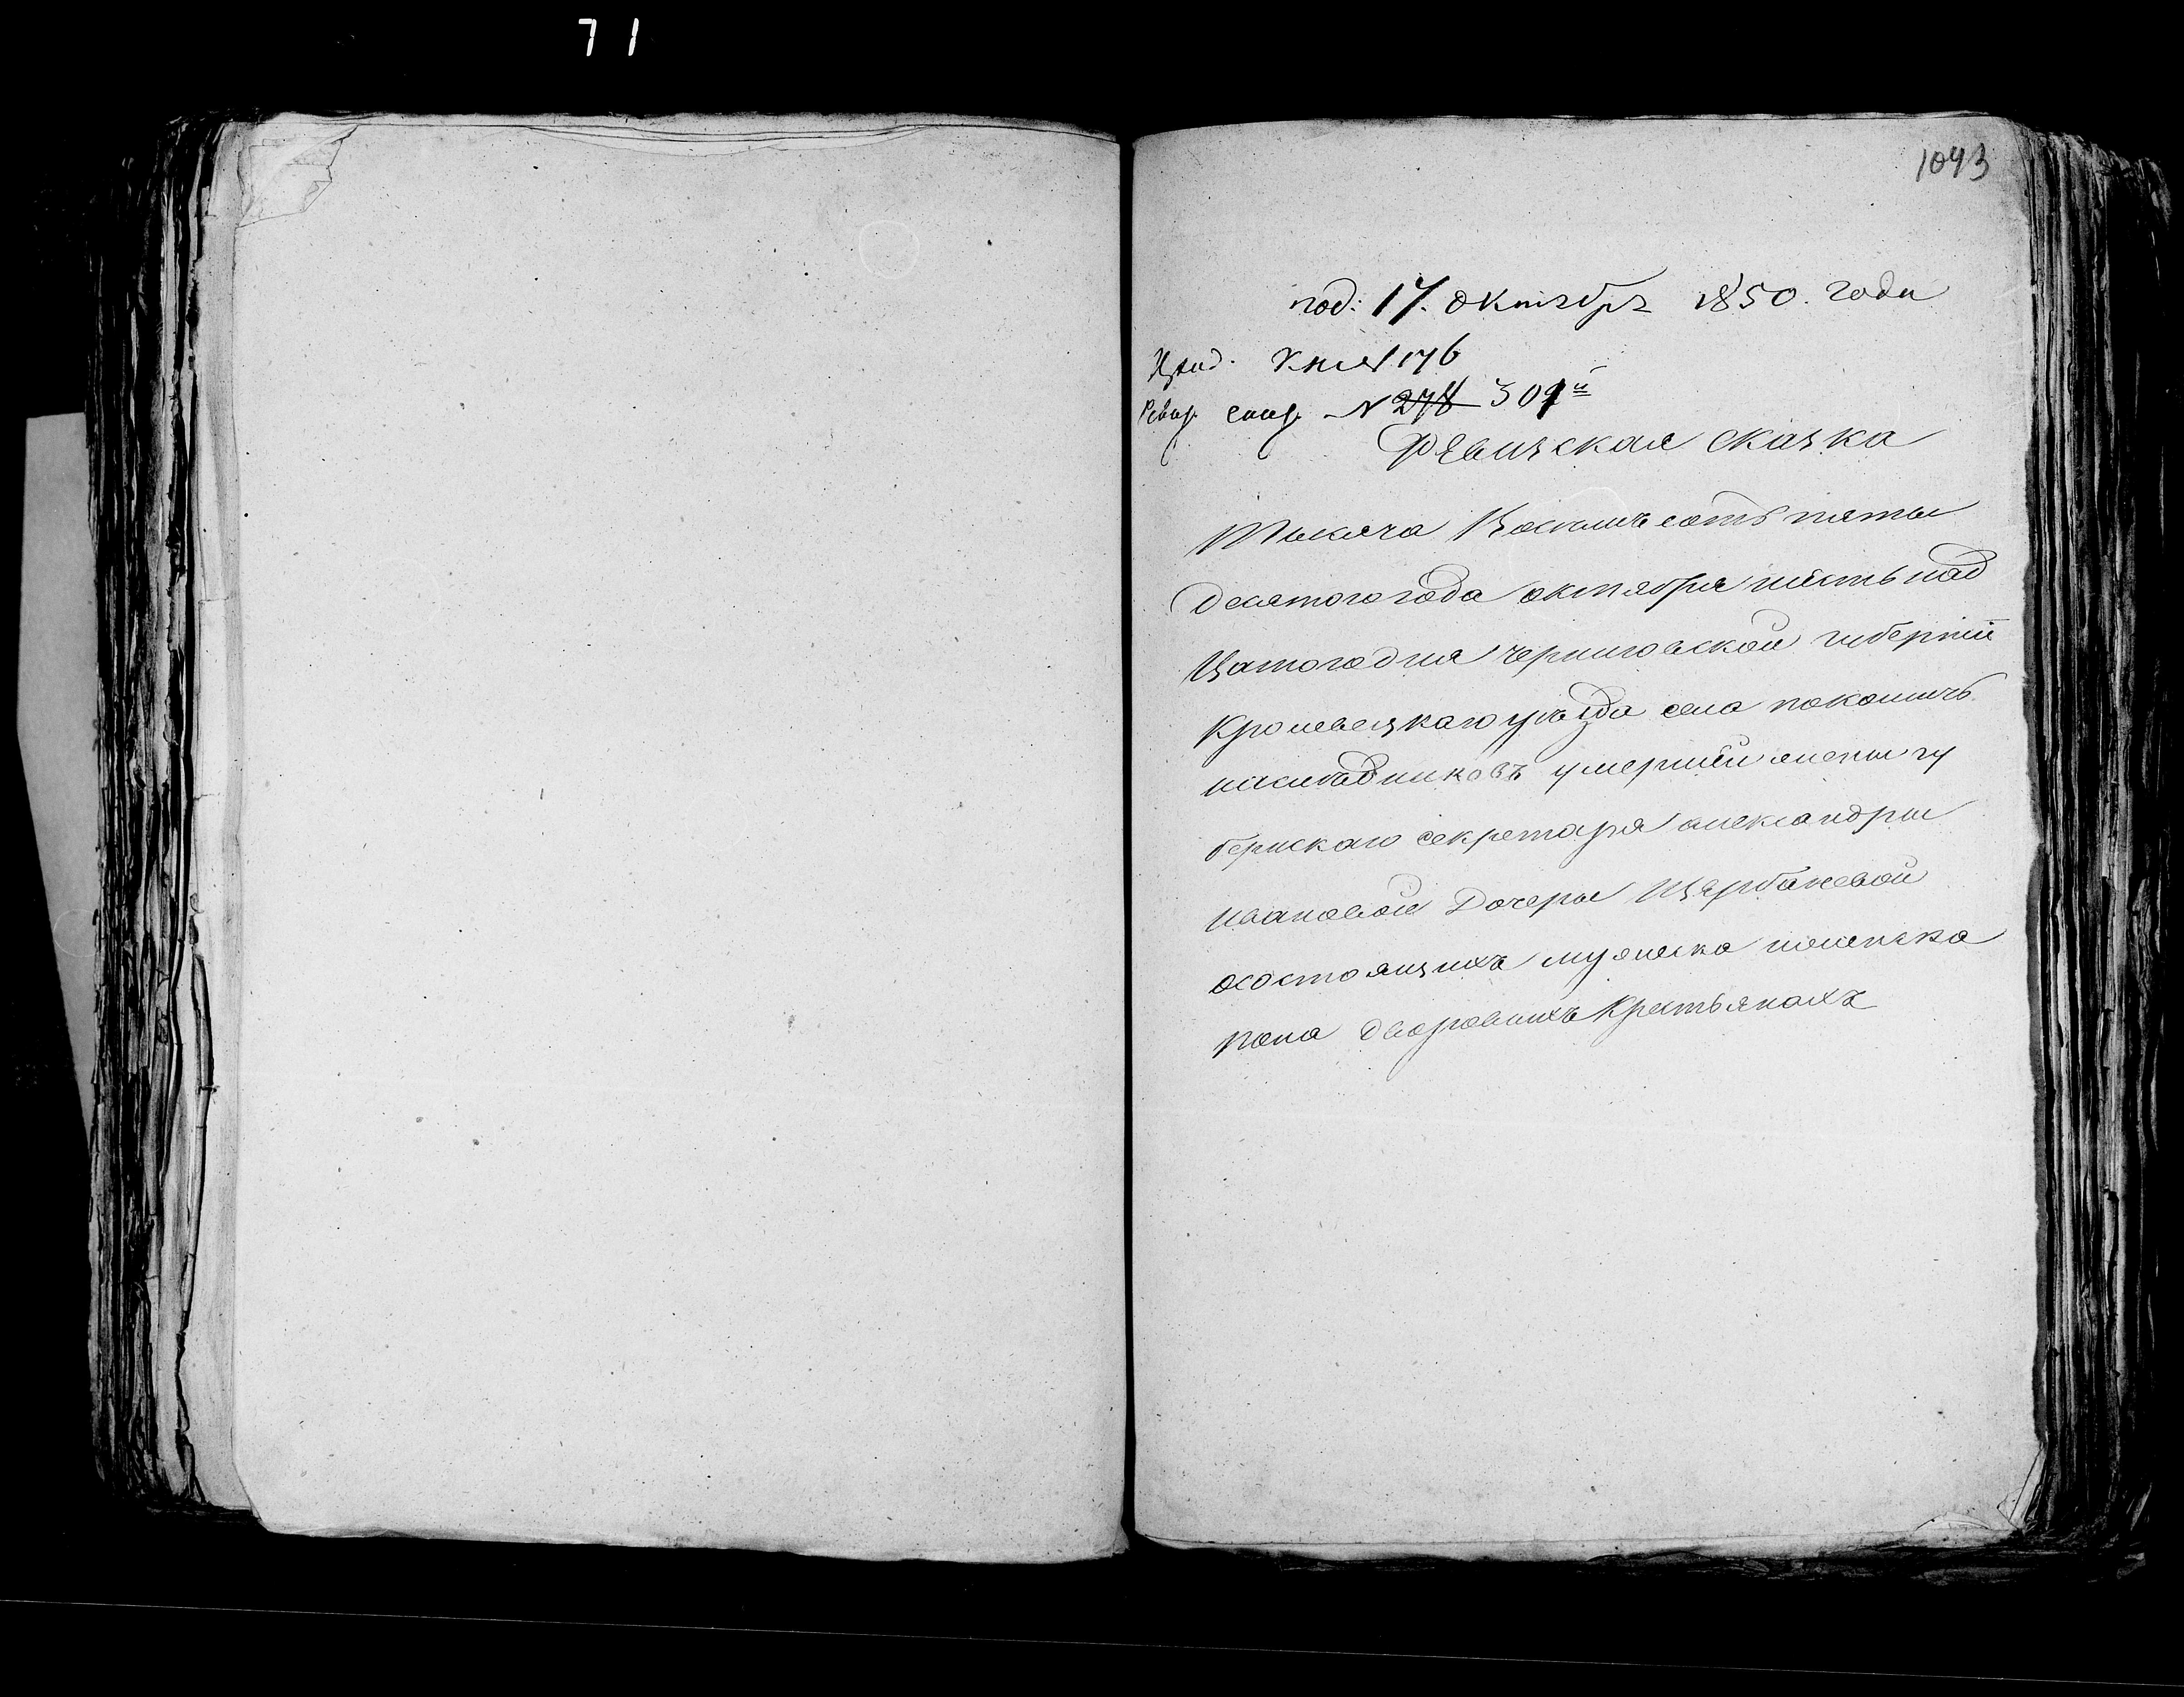 71
1043
под: 17. октября 1850. года
Уезд. Книга 176
Ревиз. сказ. N 278 301й
Ревизская сказка
Тысяча Восемъ сотъ пяты
Десятого года октября шестьнад
Цатого дня черниговской губерніи
Кролевецкаго уезда села покошичъ
наследниковъ умершей жены гу
бернскаго секретаря александры
ивановой Дочеры Щербаковой
осостоящихъ мужеска иженска
пола дворовыхъ Крестьянахъ